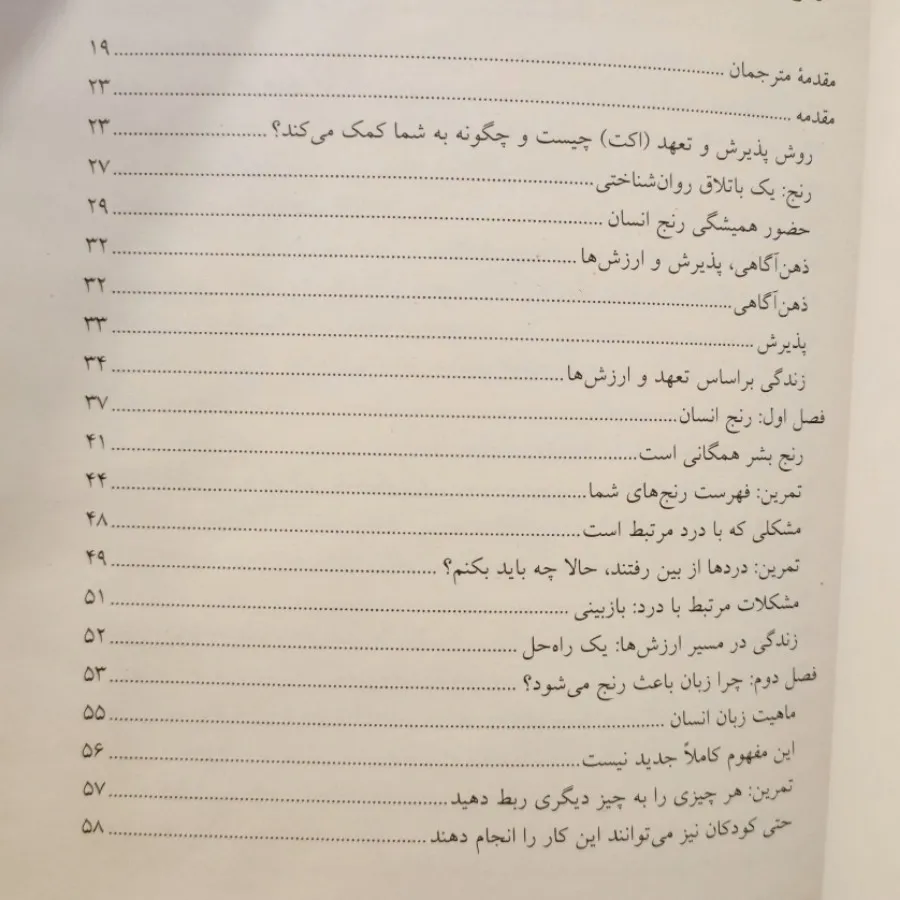 مقدمهٔ مترجمان ........ ۱۹
مقدمه ........ ۲۳
روش پذیرش و تعهد (اکت) چیست و چگونه به شما کمک می‌کند؟ ........ ۲۳
رنج: یک باتلاق روان‌شناختی ........ ۲۷
حضور همیشگی رنج انسان ........ ۲۹
ذهن‌آگاهی، پذیرش و ارزش‌ها ........ ۳۲
ذهن‌آگاهی ........ ۳۲
پذیرش ........ ۳۳
زندگی براساس تعهد و ارزش‌ها ........ ۳۴
فصل اول: رنج انسان ........ ۳۷
رنج بشر همگانی است ........ ۴۱
تمرین: فهرست رنج‌های شما ........ ۴۴
مشکلی که با درد مرتبط است ........ ۴۸
تمرین: دردها از بین رفتند، حالا چه باید بکنم؟ ........ ۴۹
مشکلات مرتبط با درد: بازبینی ........ ۵۱
زندگی در مسیر ارزش‌ها: یک راه‌حل ........ ۵۲
فصل دوم: چرا زبان باعث رنج می‌شود؟ ........ ۵۳
ماهیت زبان انسان ........ ۵۵
این مفهوم کاملاً جدید نیست ........ ۵۶
تمرین: هر چیزی را به چیز دیگری ربط دهید ........ ۵۷
حتی کودکان نیز می‌توانند این کار را انجام دهند ........ ۵۸